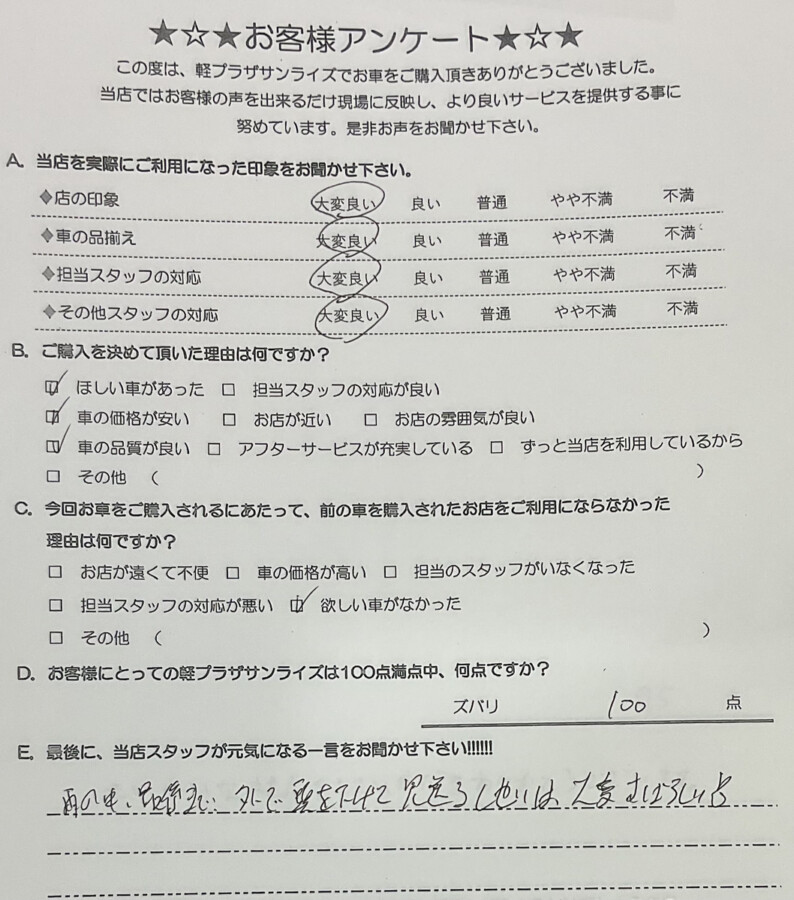 ★☆★お客様アンケート★☆★
この度は、軽プラザサンライズでお車をご購入頂きありがとうございました。
当店ではお客様の声を出来るだけ現場に反映し、より良いサービスを提供する事に
努めています。是非お声をお聞かせ下さい。
A. 当店を実際にご利用になった印象をお聞かせ下さい。
◆店の印象 大変良い 良い 普通 やや不満 不満
◆車の品揃え 大変良い 良い 普通 やや不満 不満
◆担当スタッフの対応 大変良い 良い 普通 やや不満 不満
◆その他スタッフの対応 大変良い 良い 普通 やや不満 不満
B. ご購入を決めて頂いた理由は何ですか?
☑ ほしい車があった □ 担当スタッフの対応が良い
☑ 車の価格が安い □ お店が近い □ お店の雰囲気が良い
☑ 車の品質が良い □ アフターサービスが充実している □ ずっと当店を利用しているから
□ その他 ( )
C. 今回お車をご購入されるにあたって、前の車を購入されたお店をご利用にならなかった
理由は何ですか?
□ お店が遠くて不便 □ 車の価格が高い □ 担当のスタッフがいなくなった
□ 担当スタッフの対応が悪い ☑ 欲しい車がなかった
□ その他 ( )
D. お客様にとっての軽プラザサンライズは100点満点中、何点ですか?
ズバリ 100 点
E. 最後に、当店スタッフが元気になる一言をお聞かせ下さい!!!!!!
外で頭を下げて見送る 大変すばらしい